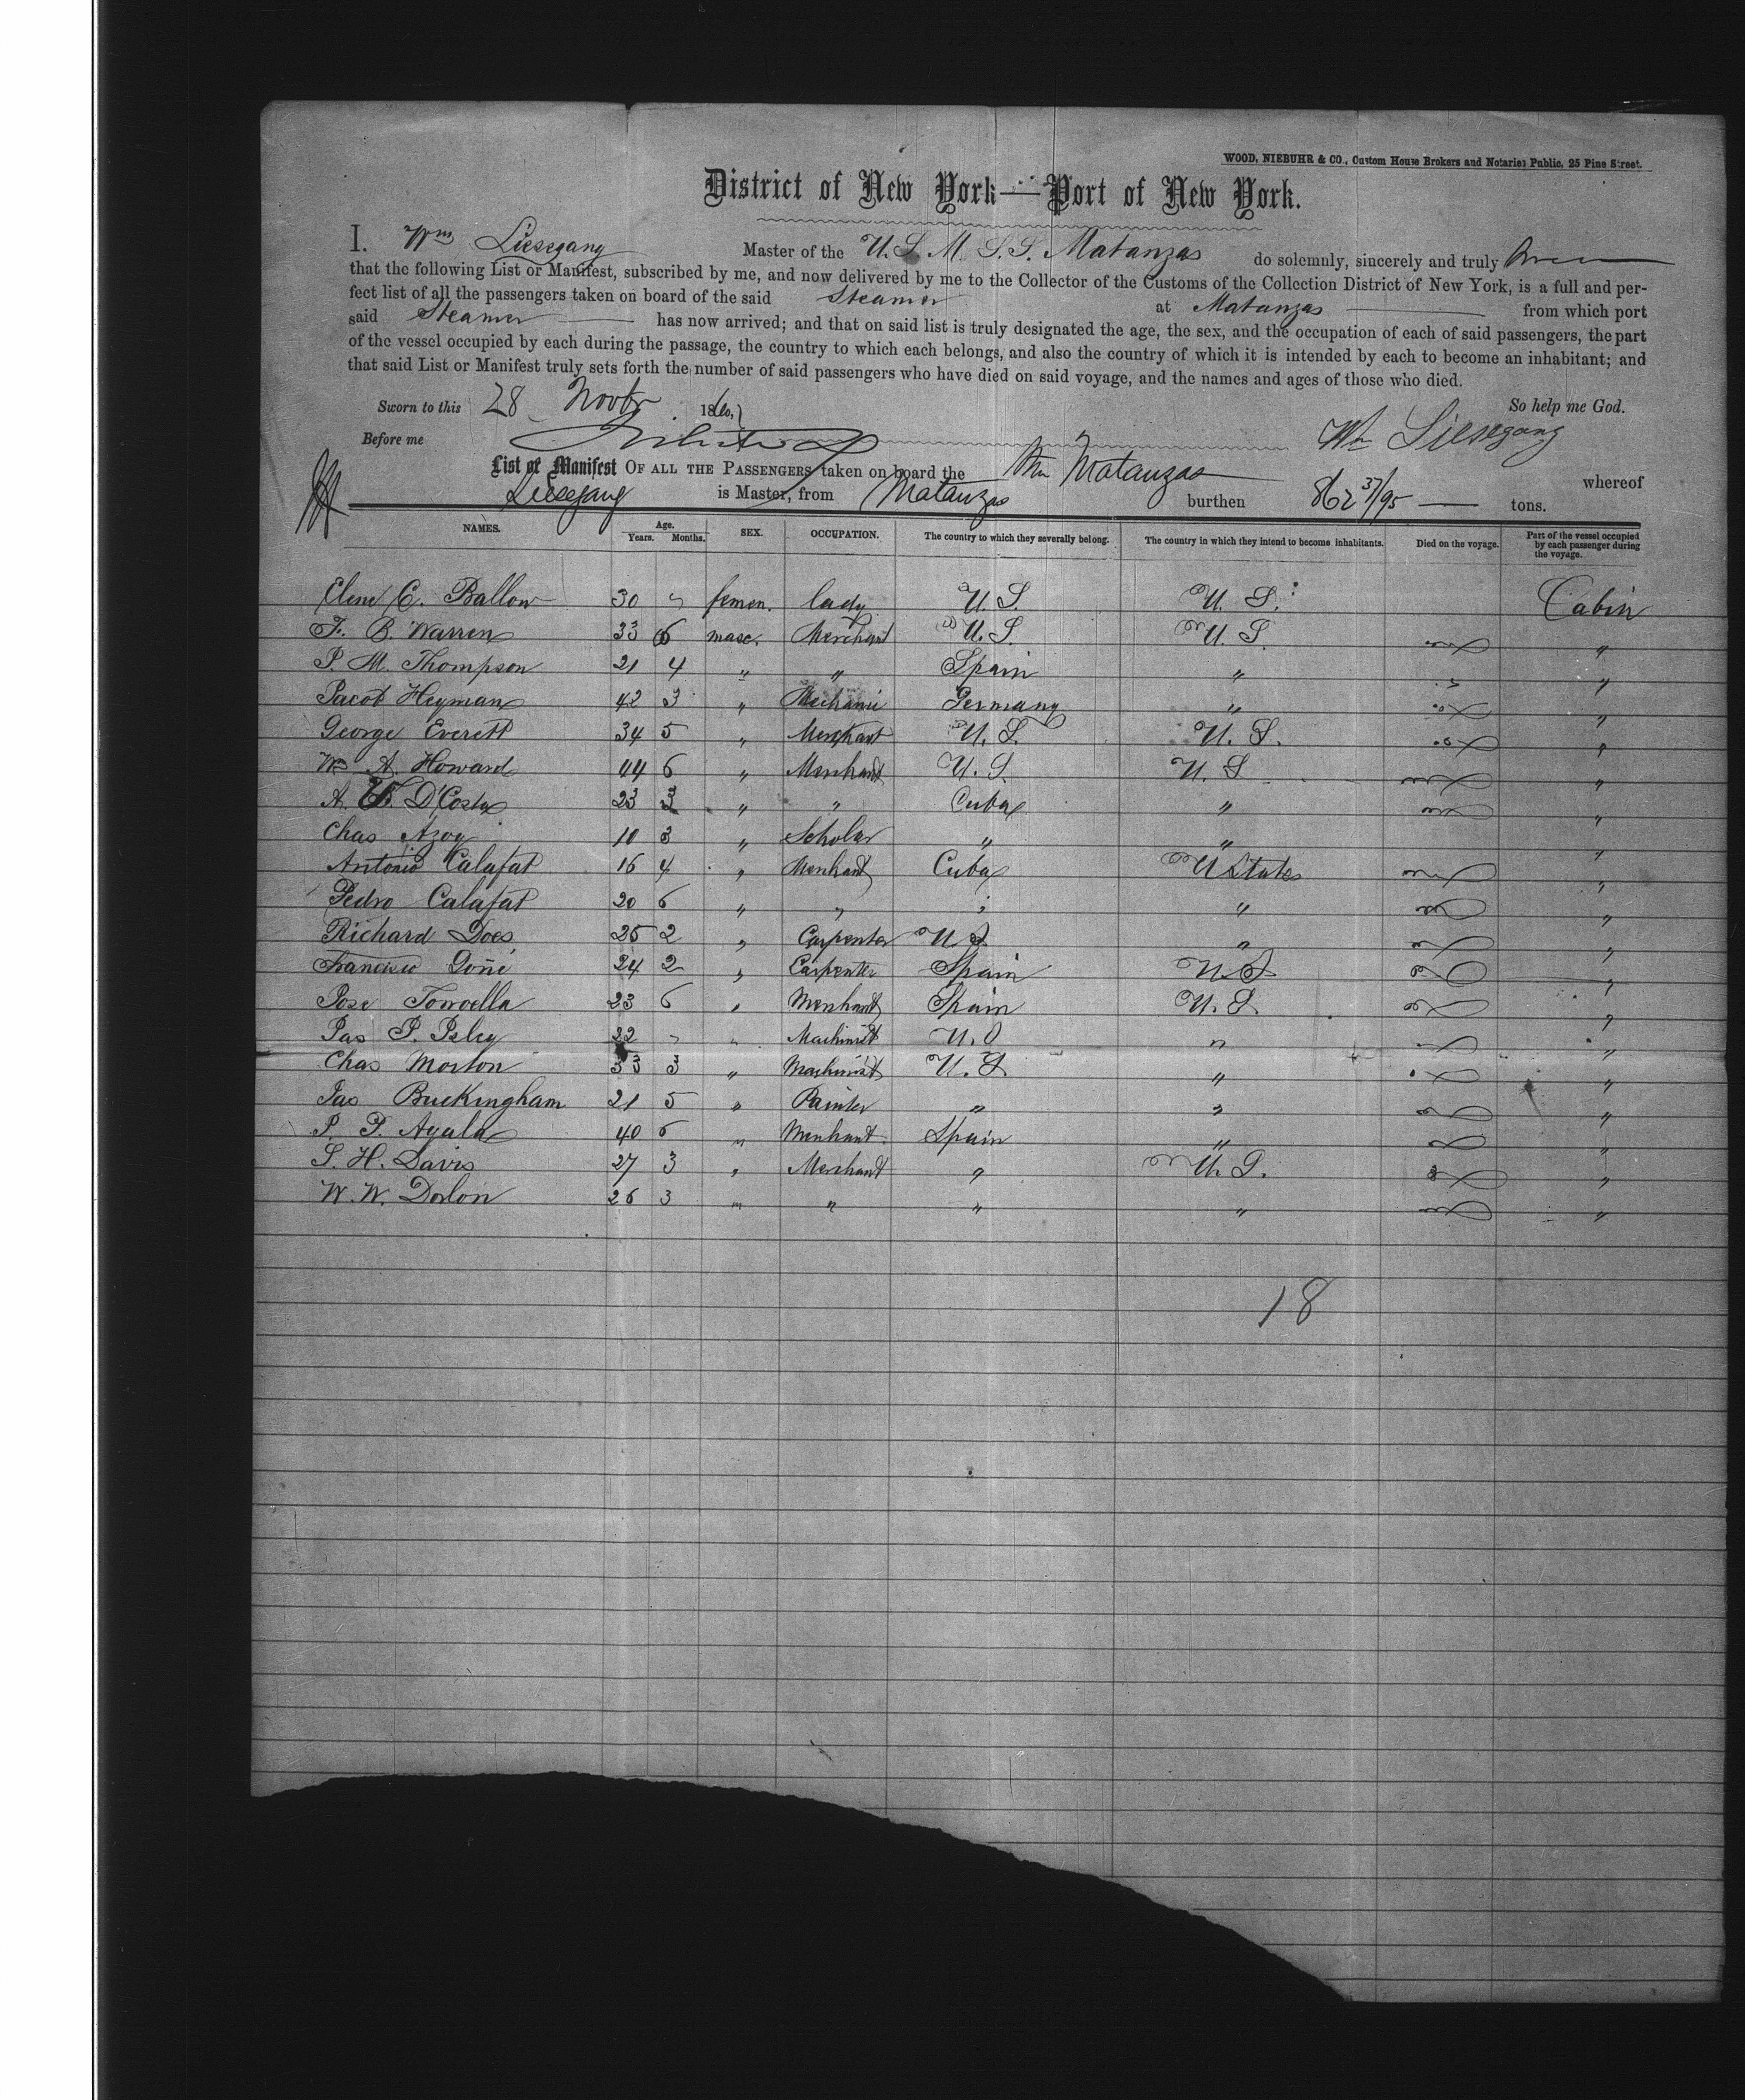 WOOD, NIEBUHR & CO., Custom House Brokers and Notaries Public, 25 Pine Street.
District of New York—Port of New York.
I. Wm Liesegang Master of the U.S.M.S.S. Matanzas do solemnly, sincerely and truly
that the following List or Manifest, subscribed by me, and now delivered by me to the Collector of the Customs of the Collection District of New York, is a full and per-
fect list of all the passengers taken on board of the said Steamer at Matanzas from which port
said Steamer has now arrived; and that on said list is truly designated the age, the sex, and the occupation of each of said passengers, the part
of the vessel occupied by each during the passage, the country to which each belongs, and also the country of which it is intended by each to become an inhabitant; and
that said List or Manifest truly sets forth the number of said passengers who have died on said voyage, and the names and ages of those who died.
Sworn to this 28 Novbr 18 So help me God.
Before me Wm Liesegang
List or Manifest OF ALL THE PASSENGERS taken on board the Matanzas whereof
Liesegang is Master, from Matanzas burthen 862 37/95 tons.
NAMES. Age. Years. Months. SEX. OCCUPATION. The country to which they severally belong. The country in which they intend to become inhabitants. Died on the voyage. Part of the vessel occupied by each passenger during the voyage.
E. Ballow 30 " femen. lady U.S. U.S. Cabin
F. B. Warren 33 6 masc. Merchant U.S. U.S. "
P. M. Thompson 21 4 " " Spain " "
Jacob Heyman 42 3 " Mechanic Germany " "
George Everett 34 5 " Merchant U.S. U.S. "
Wm A. Howard 44 6 " Merchant U.S. U.S "
A. D'Costa 23 3 " " Cuba " "
Chas Azoy 10 3 " Scholar " " "
Antonio Calafat 16 4 " Merchant Cuba U States "
Pedro Calafat 20 6 " " " " "
Richard Does 25 2 " Carpenter U.S. " "
Francisco Goñi 24 2 " Carpenter Spain U.S "
Jose Torroella 23 6 " Merchant Spain U.S. "
Jas P. 22 " " Machinist U.S " "
Chas Morton 33 3 " Machinist U.S. " "
Jas Buckingham 21 5 " Painter " " "
P. P. Ayala 40 6 " Merchant Spain " "
S. H. Davis 27 3 " Merchant " U.S. "
W. W. Dorlon 26 3 " " " " "
18